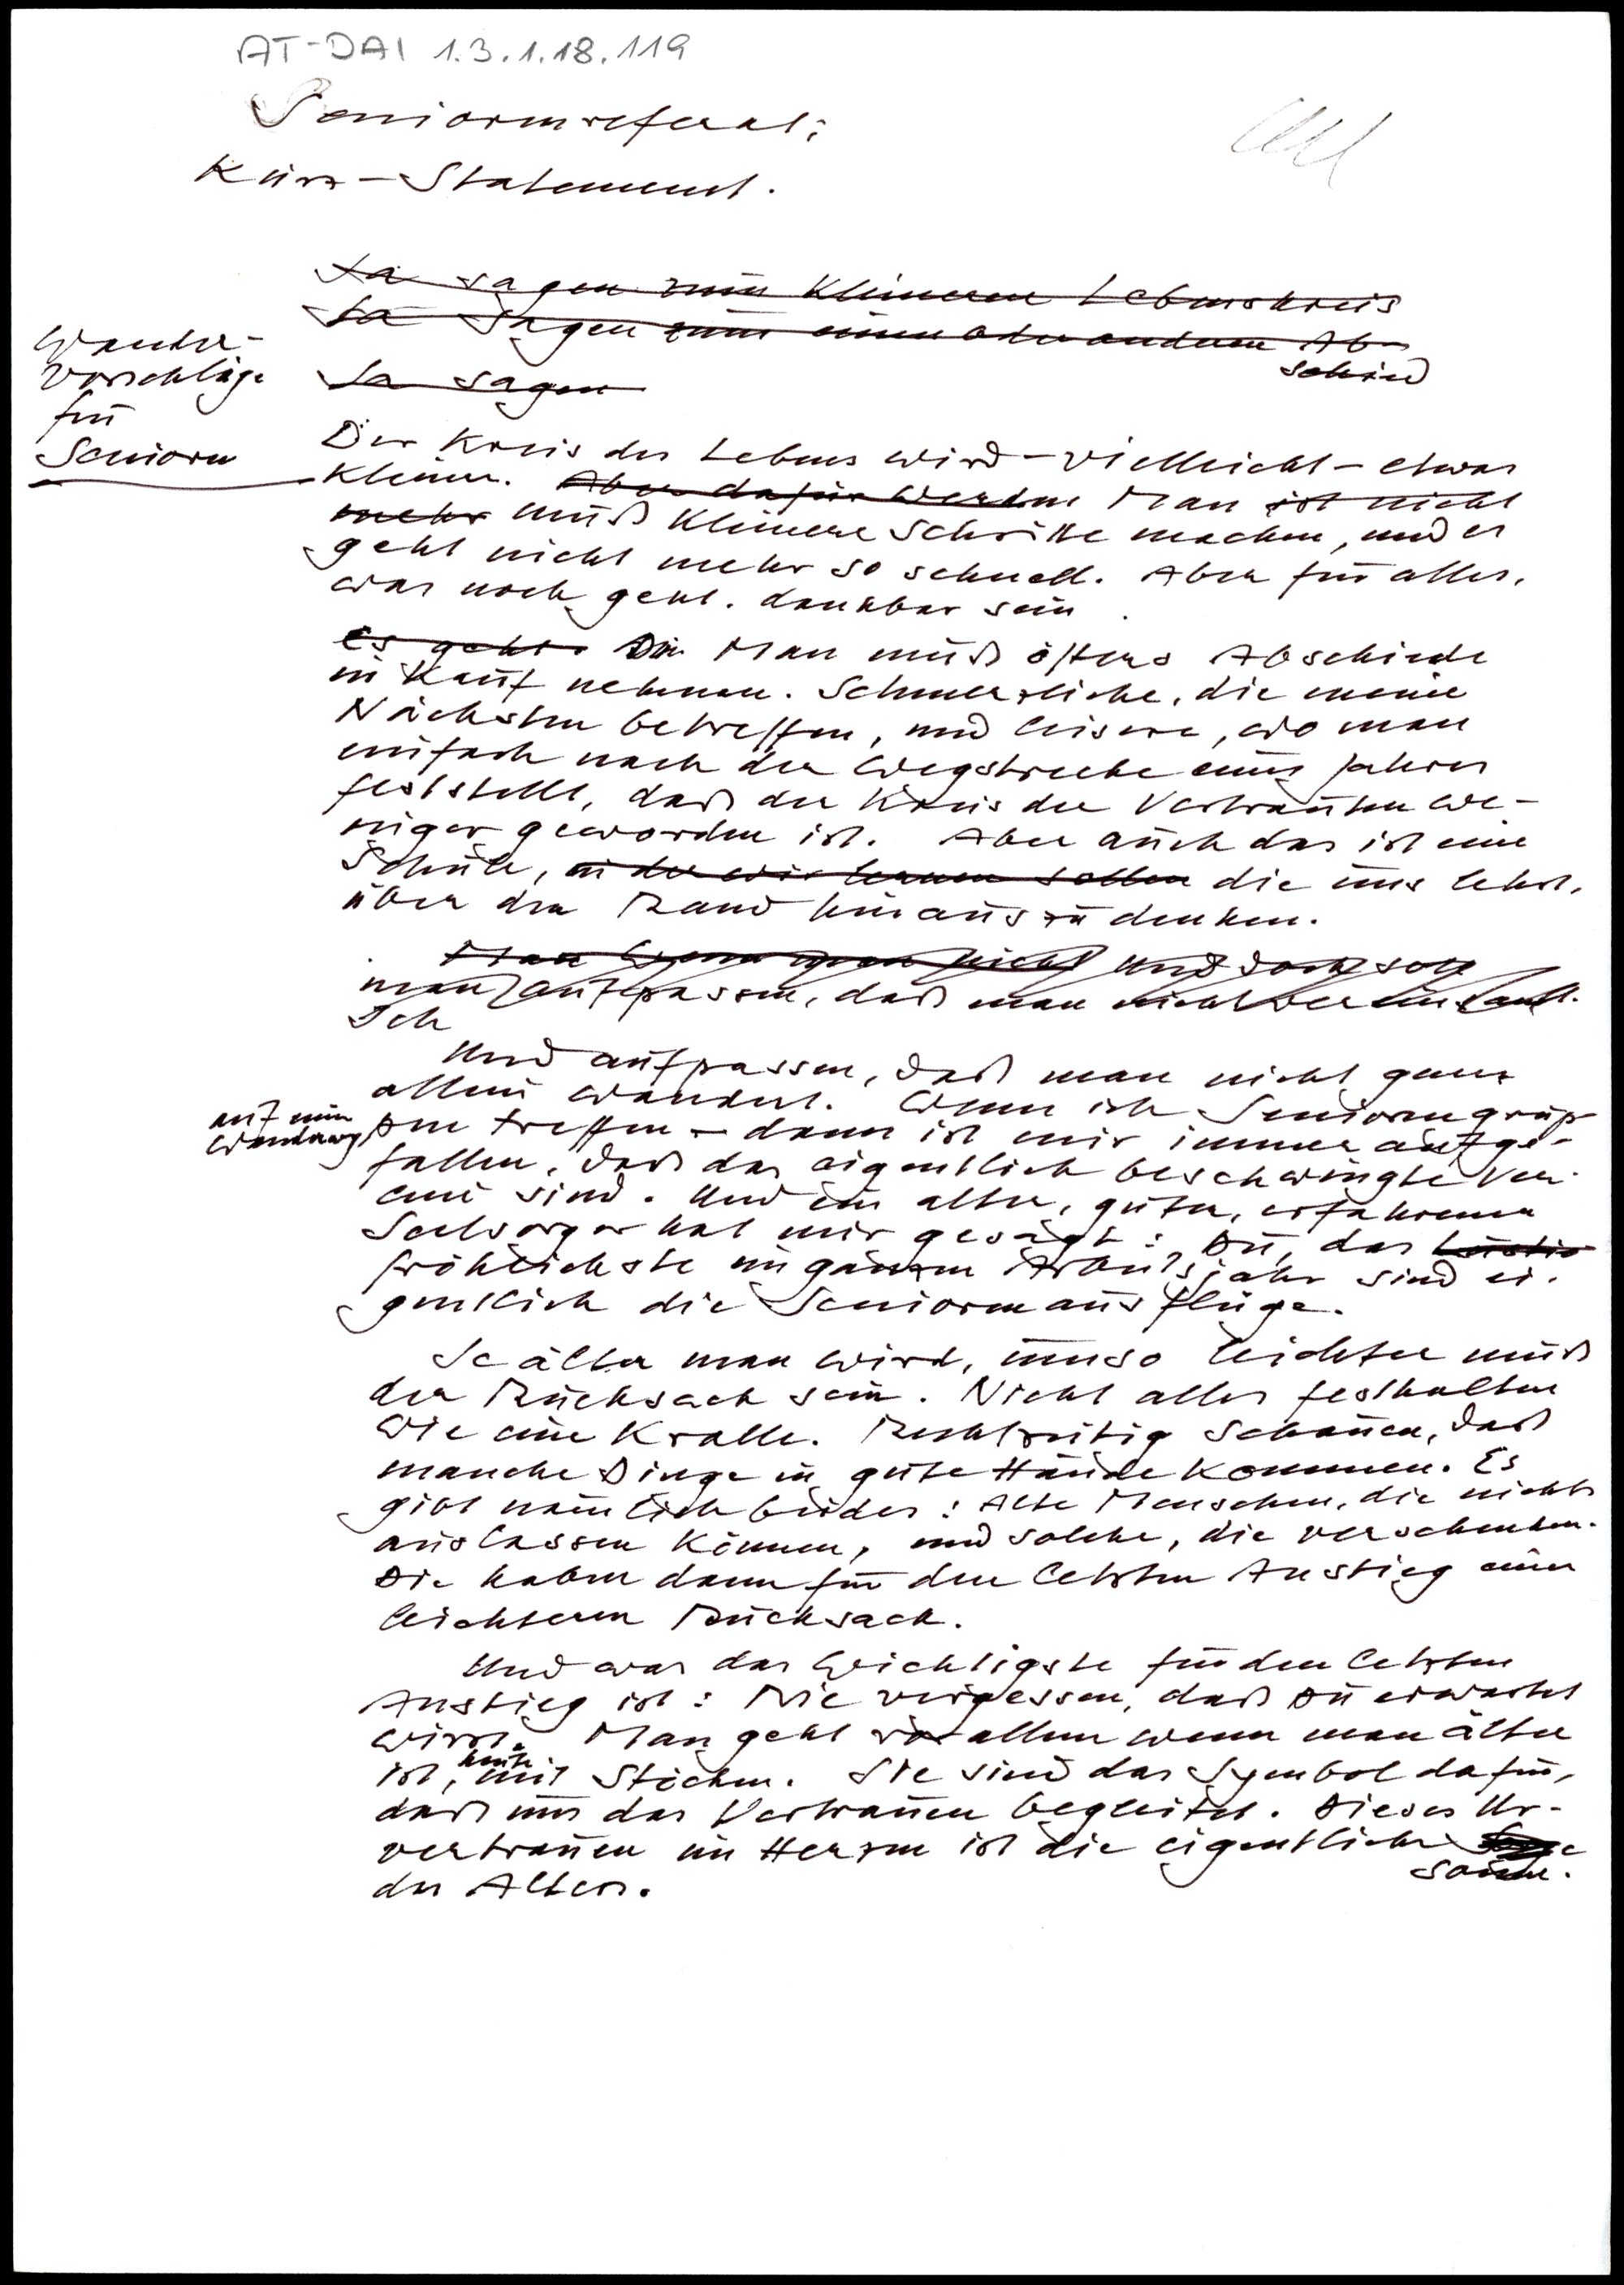 AT-DAI 1.3.1.18.119
Seniorenreferat:
Kurz-Statement.
Ja sagen zum kleineren Lebenskreis
Ja sagen zum einen oder anderen Ab-
schied
Ja sagen
Wander-
vorschläge
für
Senioren
Der Kreis des Lebens wird - vielleicht - etwas
kleiner. Aber dafür werden Man ist nicht
mehr muß kleinere Schritte machen, und es
geht nicht mehr so schnell. Aber für alles,
was noch geht, dankbar sein.
Es geht. Die Man muß öfters Abschiede
in Kauf nehmen. Schmerzliche, die meine
Nächsten betreffen, und leisere, wo man
einfach nach der Wegstrecke eines Jahres
feststellt, daß der Kreis der Vertrauten we-
niger geworden ist. Aber auch das ist eine
Schule, in der wir lernen sollen die uns lehrt,
über den Rand hinauszudenken.
Man wenn man nicht Und doch soll
man aufpassen, daß man nicht vereinsamt.
Ich
Und aufpassen, daß man nicht ganz
allein wandert. Wenn ich Seniorengrup-
auf einer
Wanderung
pen treffen - dann ist mir immer aufge-
fallen, daß das eigentlich beschwingte Ver-
eine sind. Und ein alter, guter, erfahrener
Seelsorger hat mir gesagt: Du, das lustig
fröhlichste im ganzen Arbeitsjahr sind ei-
gentlich die Seniorenausflüge.
Je älter man wird, umso leichter muß
der Rucksack sein. Nicht alles festhalten
wie eine Kralle. Rechtzeitig schauen, daß
manche Dinge in gute Hände kommen. Es
gibt nämlich beides: Alte Menschen, die nichts
auslassen können, und solche, die verschenken.
Die haben dann für den letzten Anstieg einen
leichteren Rucksack.
Und was das Wichtigste für den letzten
Anstieg ist: Nie vergessen, daß Du erwartet
wirst. Man geht vor allem wenn man älter
ist, heute mit Stöcken. Sie sind das Symbol dafür,
daß uns das Vertrauen begleitet. Dieses Ur-
vertrauen im Herzen ist die eigentliche
Sonne.
des Alters.